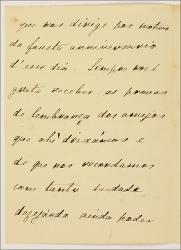 que nos dirige por motivo
do fausto anniversario
d'esse dia. Sempre nos é
grato receber as provas
de lembrança dos amigos
que ahi deixámos e
de que nos recordamos
com tanta saudade
desejando ainda poder